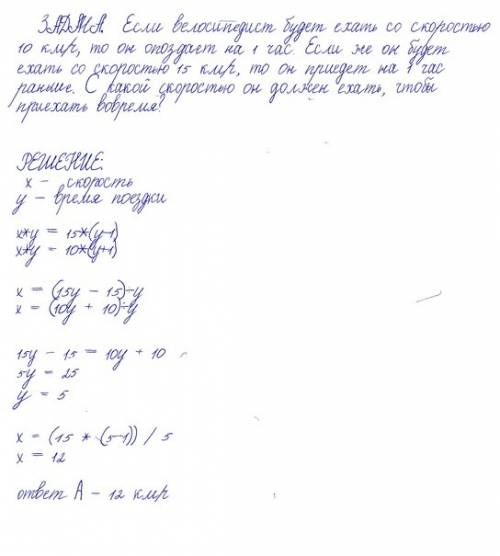 ЗАДАЧА. Если велосипедист будет ехать со скоростью
10 км/ч, то он опоздает на 1 час. Если же он будет
ехать со скоростью 15 км/ч, то он приедет на 1 час
раньше. С какой скоростью он должен ехать, чтобы
приехать вовремя?
РЕШЕНИЕ:
x - скорость
y - время поездки
x*y = 15*(y-1)
x*y = 10*(y+1)
x = (15y - 15)÷y
x = (10y + 10)÷y
15y - 15 = 10y + 10
5y = 25
y = 5
x = (15 * (5-1)) / 5
x = 12
ответ А - 12 км/ч